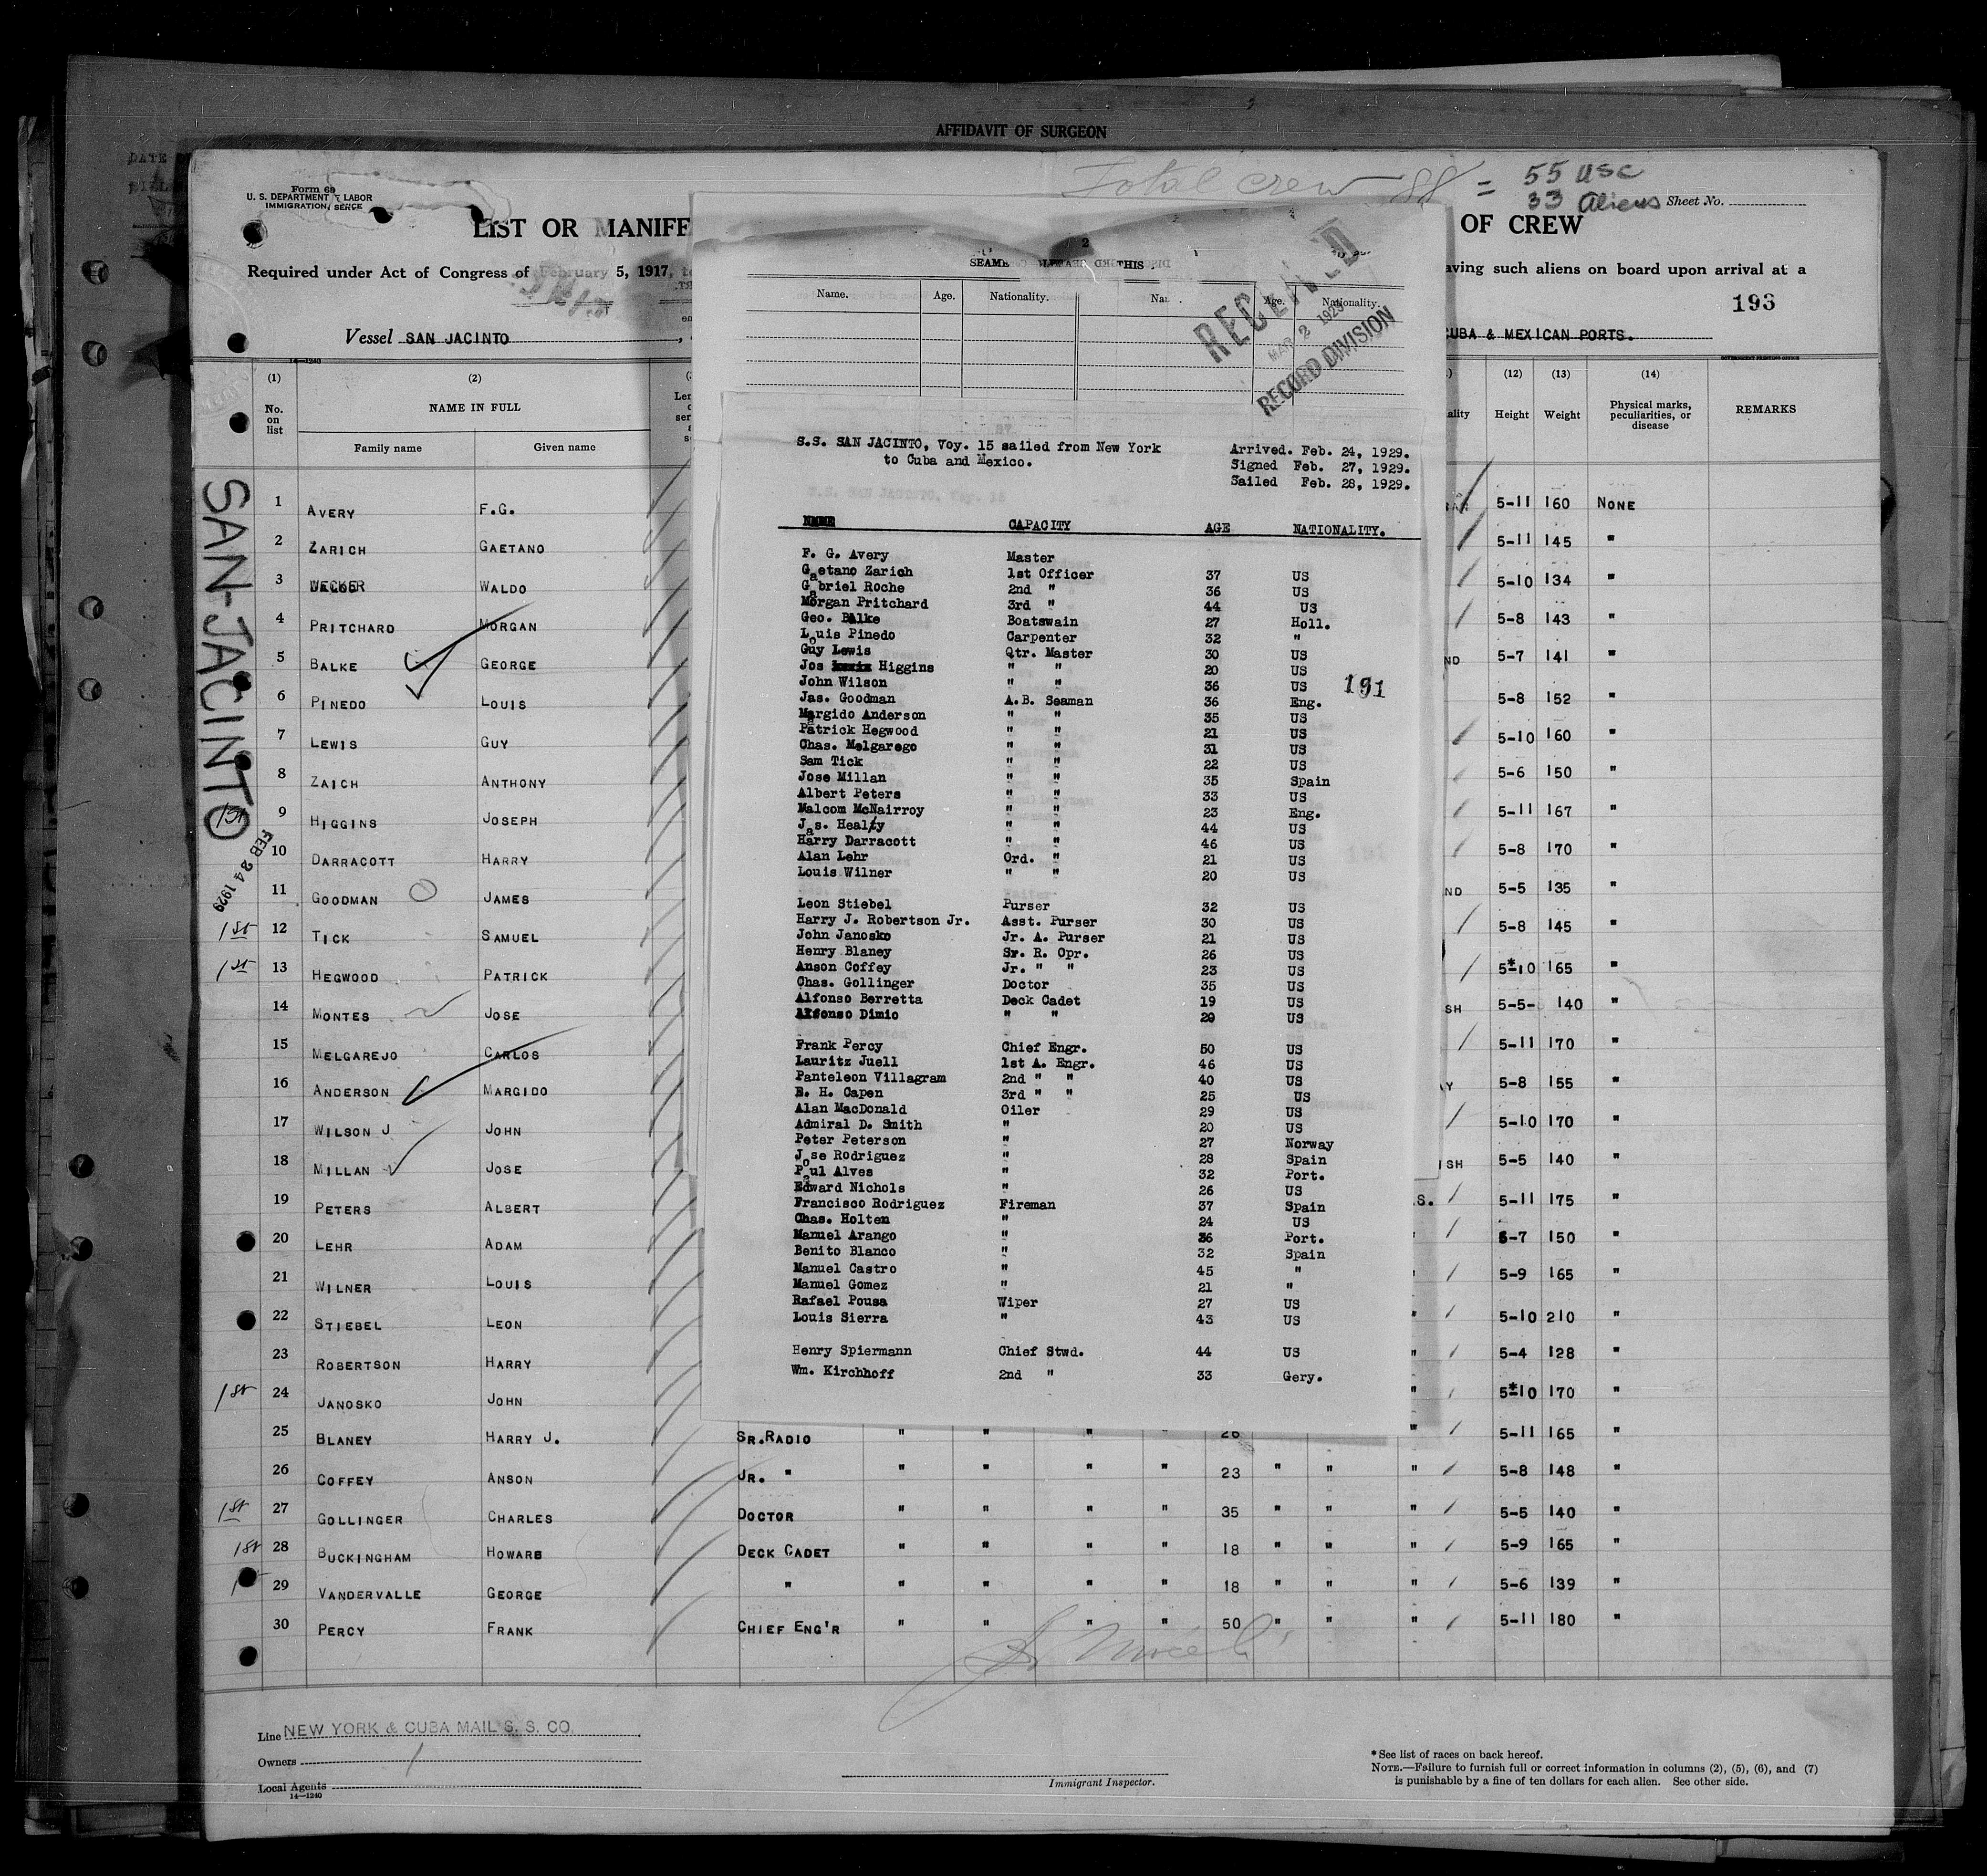 AFFIDAVIT OF SURGEON
Total crew 88 = 55 USC
33 Aliens
Sheet No.
Form 69
U. S. DEPARTMENT OF LABOR
IMMIGRATION
LIST OR MANIFE
OF CREW
Required under Act of Congress of February 5, 1917,
aving such aliens on board upon arrival at a
193
Vessel SAN JACINTO
CUBA & MEXICAN PORTS.
14—1240
(1) (2) (12) (13) (14)
No. on list
NAME IN FULL
Family name Given name
Height Weight Physical marks, peculiarities, or disease REMARKS
SAN-JACINTO
FEB 24 1929
1 AVERY F.G. 5-11 160 NONE
2 ZARICH GAETANO 5-11 145 "
3 WALDO 5-10 134 "
4 PRITCHARD MORGAN 5-8 143 "
5 BALKE GEORGE ND 5-7 141 "
6 PINEDO LOUIS 5-8 152 "
7 LEWIS GUY 5-10 160 "
8 ZAICH ANTHONY 5-6 150 "
1st 9 HIGGINS JOSEPH 5-11 167 "
10 DARRACOTT HARRY 5-8 170 "
11 GOODMAN JAMES ND 5-5 135 "
1st 12 TICK SAMUEL 5-8 145 "
1st 13 HEGWOOD PATRICK 5-10 165 "
14 MONTES JOSE SH 5-5- 140 "
15 MELGAREJO CARLOS 5-11 170 "
16 ANDERSON MARGIDO AY 5-8 155 "
17 WILSON J JOHN 5-10 170 "
18 MILLAN JOSE ISH 5-5 140 "
19 PETERS ALBERT .S. 5-11 175 "
20 LEHR ADAM " 5-7 150 "
21 WILNER LOUIS " 5-9 165 "
22 STIEBEL LEON " 5-10 210 "
23 ROBERTSON HARRY " 5-4 128 "
1st 24 JANOSKO JOHN " 5-10 170 "
25 BLANEY HARRY J. SR.RADIO " " " " 26 " 5-11 165 "
26 COFFEY ANSON JR. " " " " " 23 " " " 5-8 148 "
1st 27 GOLLINGER CHARLES DOCTOR " " " " 35 " " " 5-5 140 "
1st 28 BUCKINGHAM HOWARB DECK CADET " " " " 18 " " " 5-9 165 "
29 VANDERVALLE GEORGE " " " " " 18 " " " 5-6 139 "
30 PERCY FRANK CHIEF ENG'R " " " " 50 " " " 5-11 180 "
Line NEW YORK & CUBA MAIL S. S. CO.
Owners
Local Agents
14—1240
Immigrant Inspector.
*See list of races on back hereof.
NOTE.—Failure to furnish full or correct information in columns (2), (5), (6), and (7)
is punishable by a fine of ten dollars for each alien. See other side.
2
SEAME THIS
Name. Age. Nationality. Na Age. Nationality.
RECEIVED
MAR 2 1929
RECORD DIVISION
S.S. SAN JACINTO, Voy. 15 sailed from New York
to Cuba and Mexico.
Arrived. Feb. 24, 1929.
Signed Feb. 27, 1929.
Sailed Feb. 28, 1929.
NAME CAPACITY AGE NATIONALITY.
F. G. Avery Master
Gaetano Zarich 1st Officer 37 US
Gabriel Roche 2nd " 36 US
Morgan Pritchard 3rd " 44 US
Geo. Balke Boatswain 27 Holl.
Louis Pinedo Carpenter 32 "
Guy Lewis Qtr. Master 30 US
Jos Higgins " " 20 US
John Wilson " " 36 US
191
Jas. Goodman A.B. Seaman 36 Eng.
Margido Anderson " " 35 US
Patrick Hegwood " " 21 US
Chas. Melgarego " " 31 US
Sam Tick " " 22 US
Jose Millan " " 35 Spain
Albert Peters " " 33 US
Malcom McNairroy " " 23 Eng.
Jas. Healty " " 44 US
Harry Darracott " " 46 US
Alan Lehr Ord. " 21 US
Louis Wilner " " 20 US
Leon Stiebel Purser 32 US
Harry J. Robertson Jr. Asst. Purser 30 US
John Janosko Jr. A. Purser 21 US
Henry Blaney Sr. R. Opr. 26 US
Anson Coffey Jr. " " 23 US
Chas. Gollinger Doctor 35 US
Alfonso Berretta Deck Cadet 19 US
Alfonso Dimio " " 20 US
Frank Percy Chief Engr. 50 US
Lauritz Juell 1st A. Engr. 46 US
Panteleon Villagram 2nd " " 40 US
E. H. Capen 3rd " " 25 US
Alan MacDonald Oiler 29 US
Admiral D. Smith " 20 US
Peter Peterson " 27 Norway
Jose Rodriguez " 28 Spain
Paul Alves " 32 Port.
Edward Nichols " 26 US
Francisco Rodriguez Fireman 37 Spain
Chas. Holten " 24 US
Manuel Arango " 36 Port.
Benito Blanco " 32 Spain
Manuel Castro " 45 "
Manuel Gomez " 21 "
Rafael Pousa Wiper 27 US
Louis Sierra " 43 US
Henry Spiermann Chief Stwd. 44 US
Wm. Kirchhoff 2nd " 33 Gery.